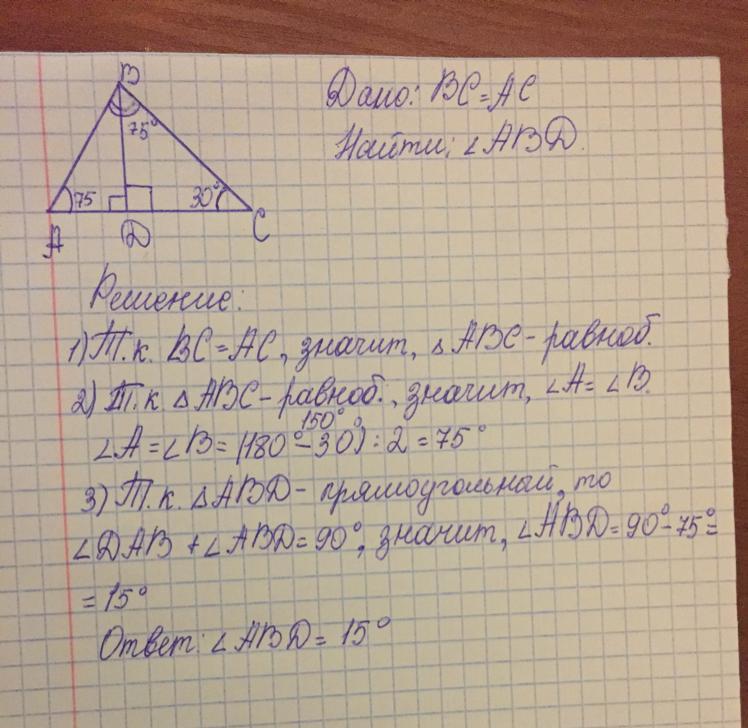 B
75°
75
30°
A
D
C
Дано: BC=AC
Найти: ∠ABD.
Решение:
1) Т.к. BC=AC, значит, △ABC- равноб.
2) Т.к △ABC- равноб., значит, ∠A= ∠B.
150°
∠A=∠B= (180°-30°):2=75°
3) Т.к. △ABD- прямоугольный, то
∠DAB +∠ABD=90°, значит, ∠ABD=90°-75°=
=15°
Ответ: ∠ABD= 15°